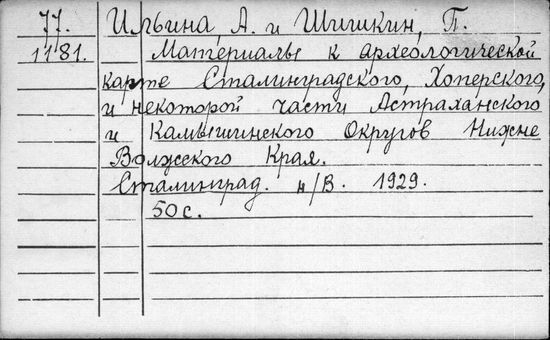 77. Ильина, А. и Шишкин, П.
1181. Материалы к археологической
карте Сталинградского, Хоперского,
и некоторой части Астраханского
и Камышинского Округов Нижне
Волжского Края.
Сталинград. н/В. 1929.
50 с.